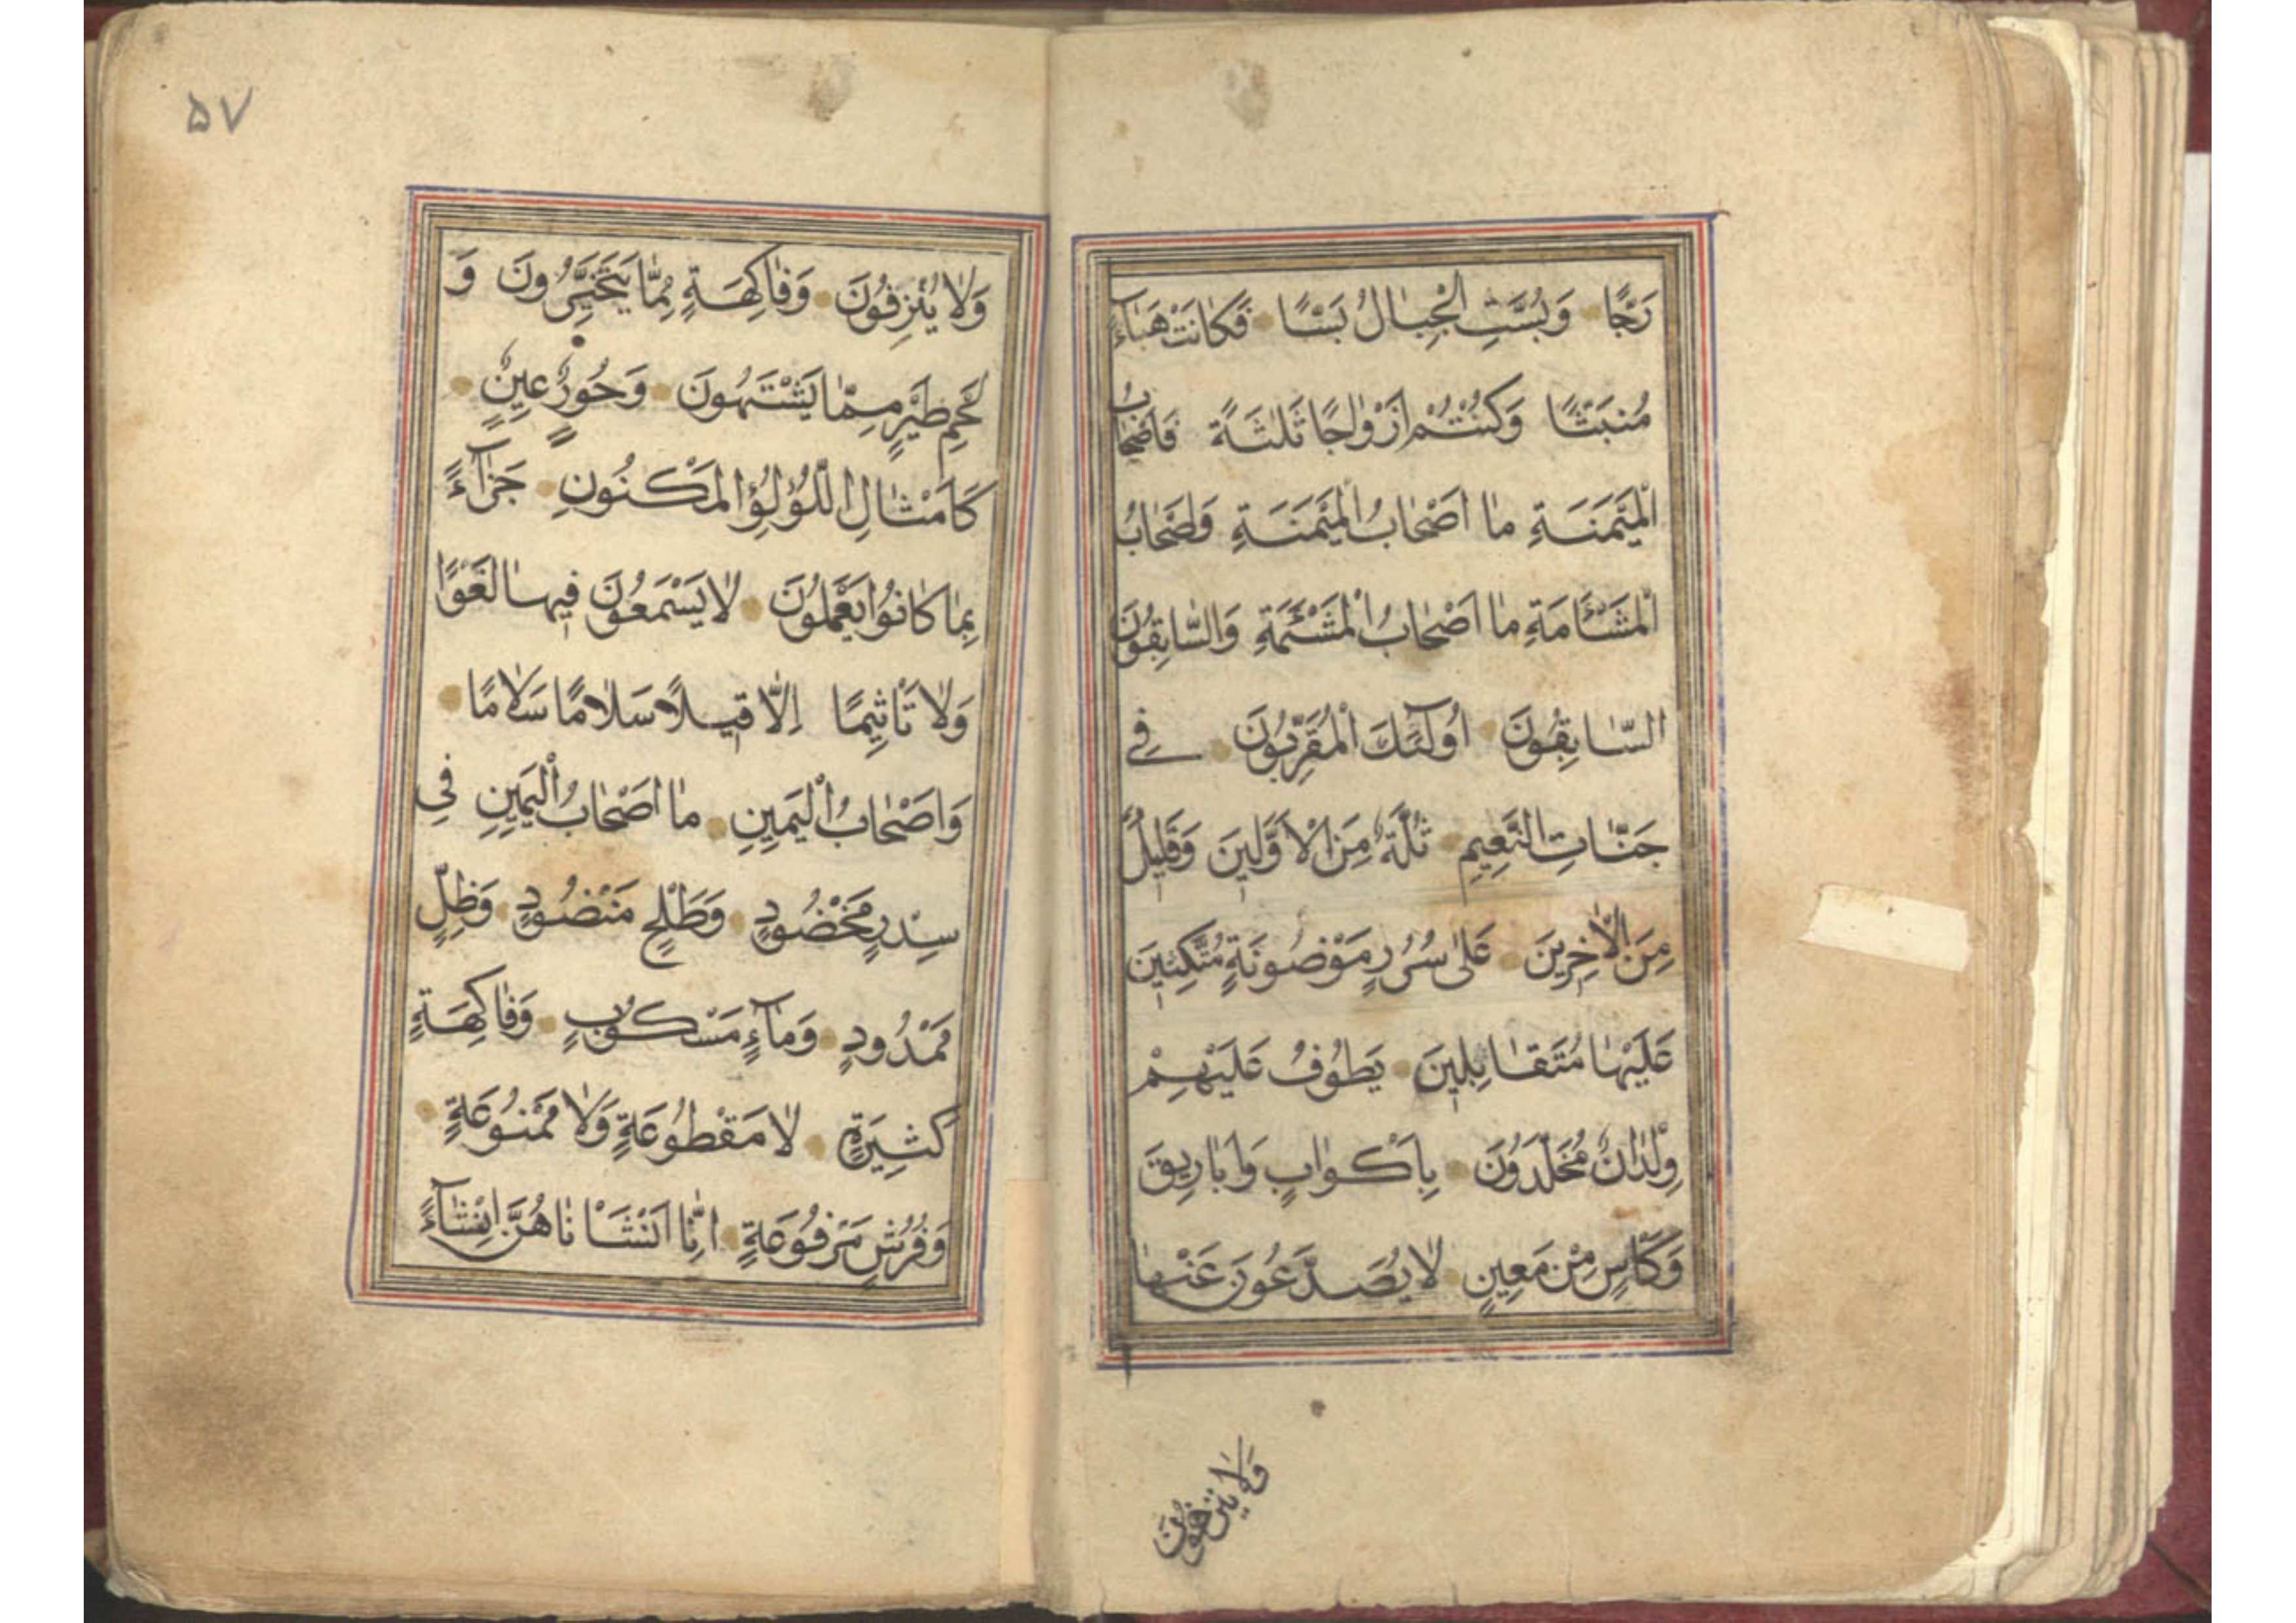 رَجًّا وَبُسَّتِ الْجِبٰالُ بَسًّا فَكٰانَتْ هَبٰآءً
مُنْبَثًّا وَكُنْتُمْ اَزْوٰاجًا ثَلٰثَةً فَاَصْحٰابُ
الْمَيْمَنَةِ مٰا اَصْحٰابُ الْمَيْمَنَةِ وَاَصْحٰابُ
الْمَشْئَامَةِ مٰا اَصْحٰابُ الْمَشْئَمَةِ وَالسّٰابِقُونَ
السّٰابِقُونَ اُولٰٓئِكَ الْمُقَرَّبُونَ فِے
جَنّٰاتِ النَّعِيمِ ثُلَّةٌ مِنَ الْاَوَّلِينَ وَقَلِيلٌ
مِنَ الْاٰخِرِينَ عَلٰى سُرُرٍ مَوْضُونَةٍ مُتَّكِئِينَ
عَلَيْهٰا مُتَقٰابِلِينَ يَطُوفُ عَلَيْهِمْ
وِلْدٰانٌ مُخَلَّدُونَ بِاَكْوٰابٍ وَاَبٰارِيقَ
وَكَأْسٍ مِنْ مَعِينٍ لٰا يُصَدَّعُونَ عَنْهٰا
وَلٰا يُنْزِفُونَ
۵۷
وَلٰا يُنْزِفُونَ وَفٰاكِهَةٍ مِمّٰا يَتَخَيَّرُونَ وَ
لَحْمِ طَيْرٍ مِمّٰا يَشْتَهُونَ وَحُورٌ عِينٌ
كَاَمْثٰالِ اللُّؤْلُؤِ الْمَكْنُونِ جَزٰآءً
بِمٰا كٰانُوا يَعْمَلُونَ لٰا يَسْمَعُونَ فِيهٰا لَغْوًا
وَلٰا تَأْثِيمًا اِلّٰا قِيلًا سَلٰامًا سَلٰامًا
وَاَصْحٰابُ الْيَمِينِ مٰا اَصْحٰابُ الْيَمِينِ فِى
سِدْرٍ مَخْضُودٍ وَطَلْحٍ مَنْضُودٍ وَظِلٍّ
مَمْدُودٍ وَمٰآءٍ مَسْكُوبٍ وَفٰاكِهَةٍ
كَثِيرَةٍ لٰا مَقْطُوعَةٍ وَلٰا مَمْنُوعَةٍ
وَفُرُشٍ مَرْفُوعَةٍ اِنّٰا اَنْشَأْنٰاهُنَّ اِنْشٰآءً